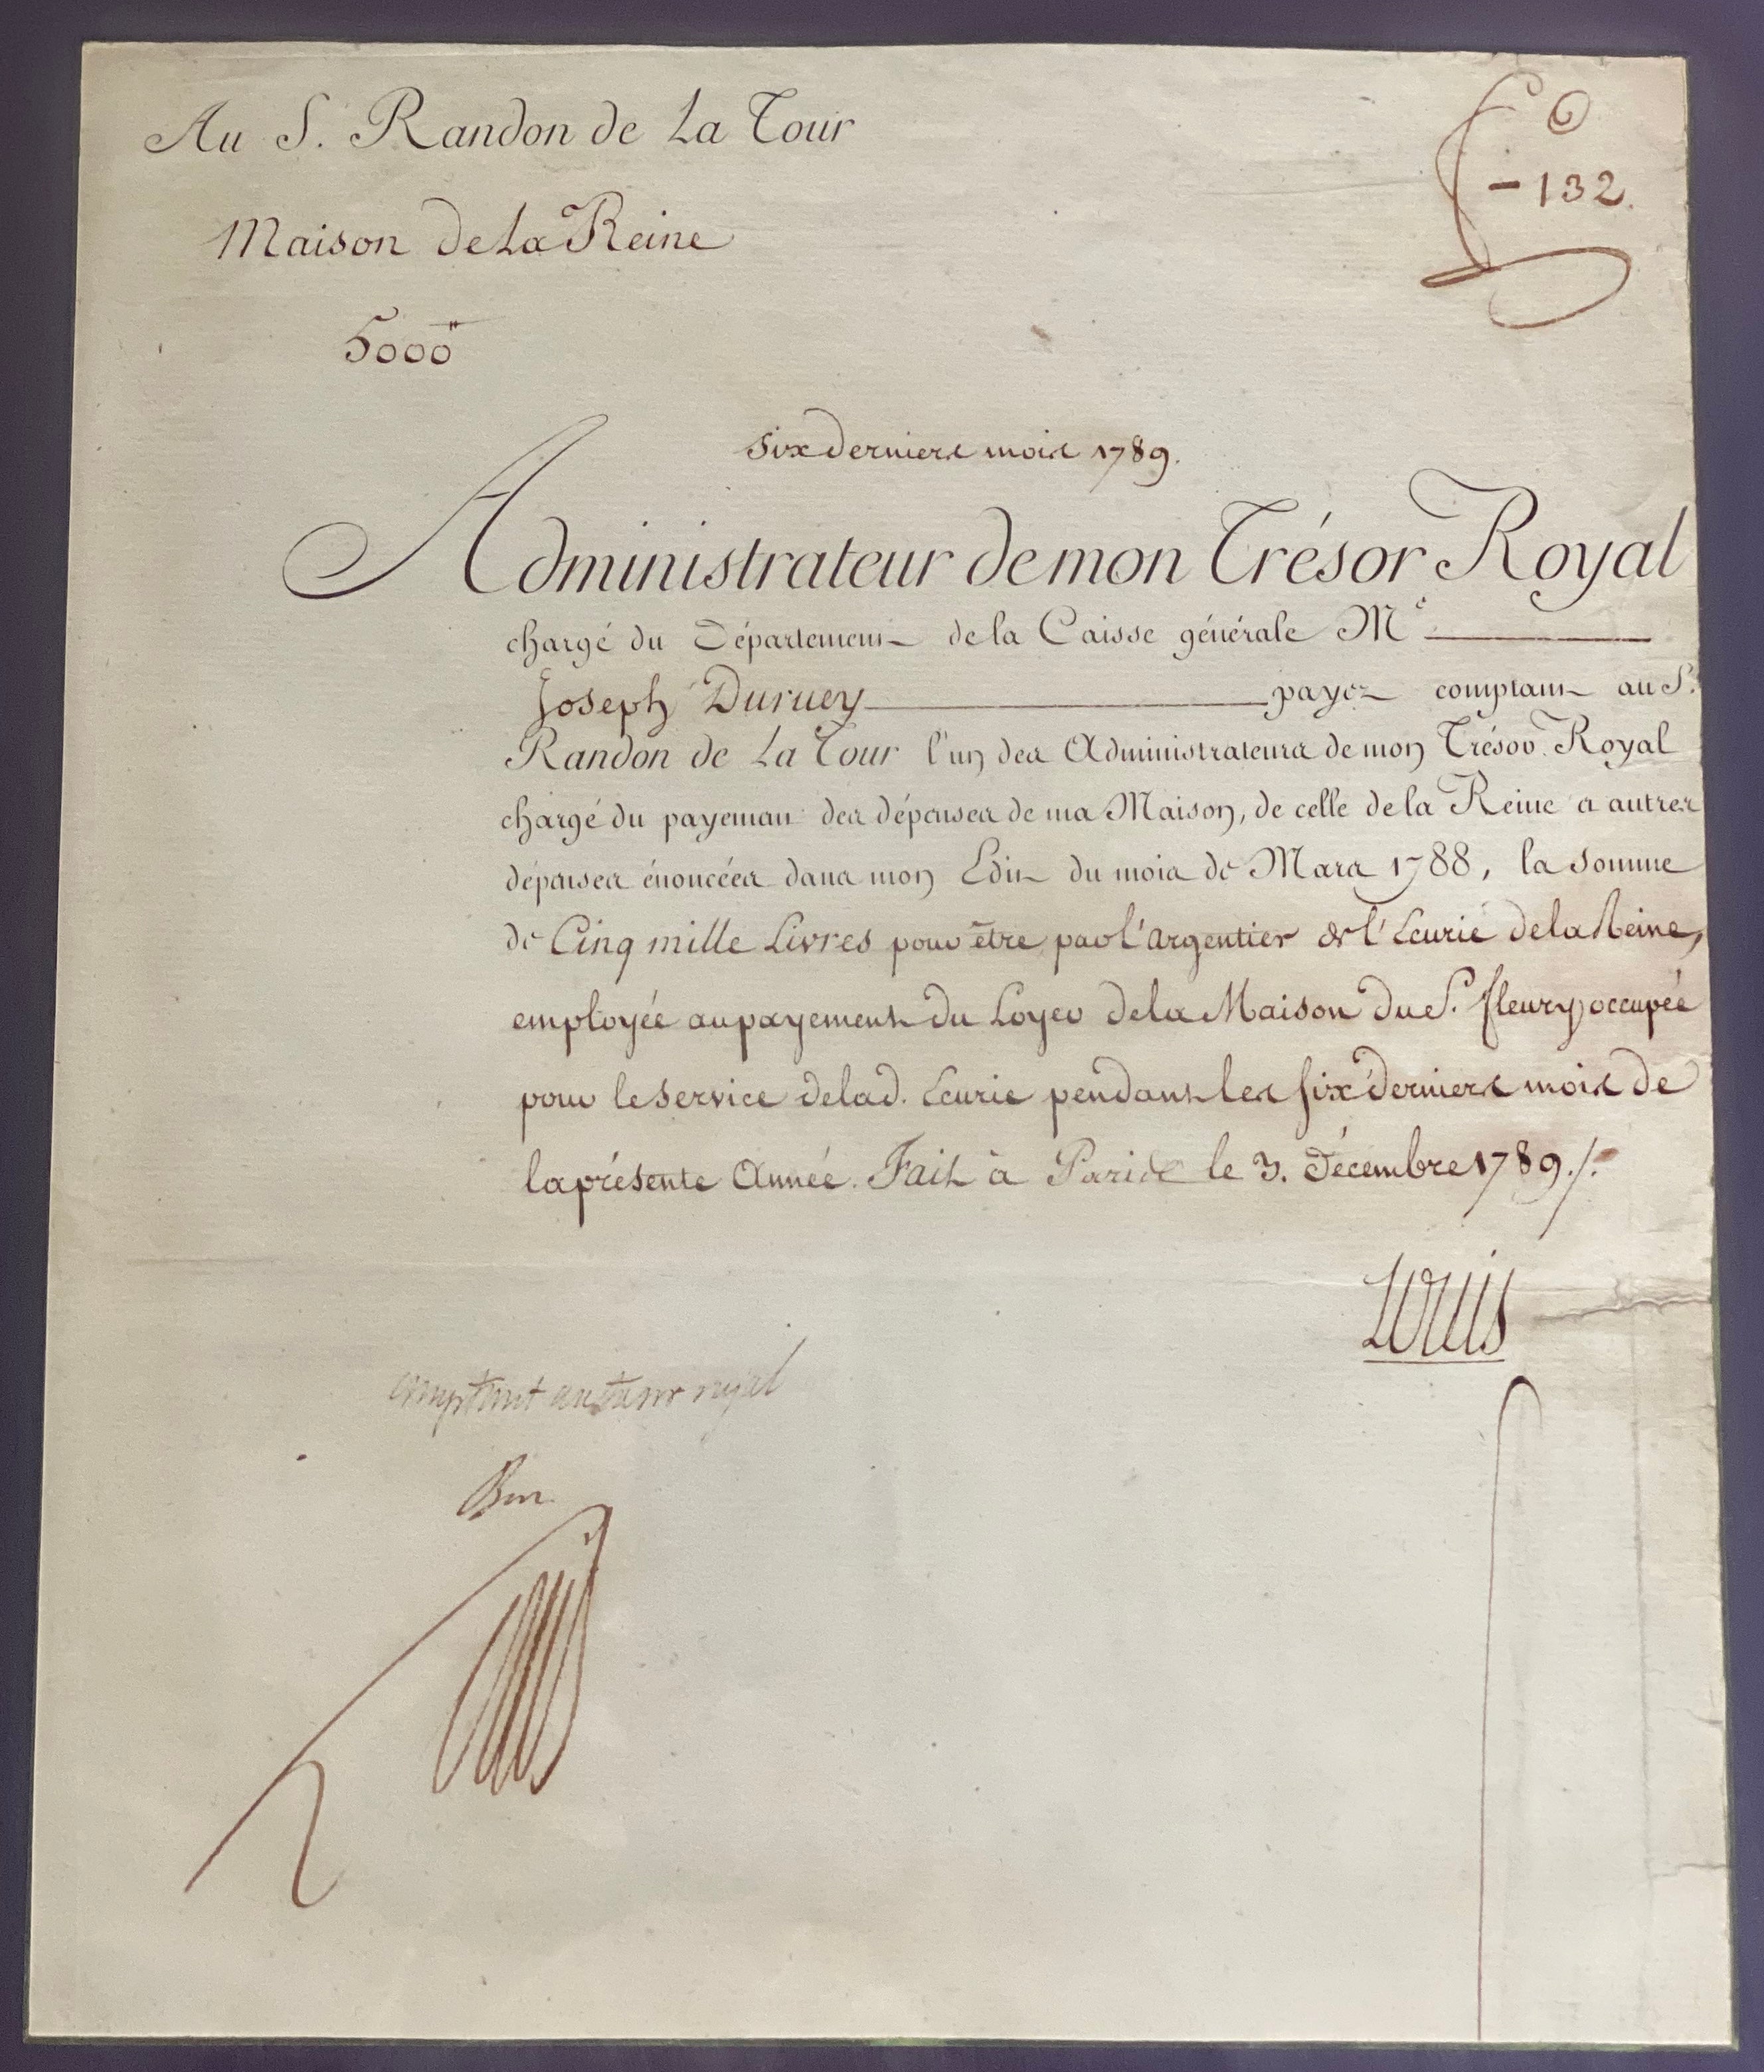 Au S. Randon de La Tour
- 132.
Maison de La Reine
5000"
Six derniers mois 1789.
Administrateur de mon Trésor Royal
chargé du Département de la Caisse générale Me
Joseph Duruey payez comptant au S.
Randon de La Tour l'un des Administrateurs de mon Trésor Royal
chargé du payement des dépenses de ma Maison, de celle de la Reine et autres
dépenses énoncées dans mon Edit du mois de Mars 1788, la somme
de Cinq mille Livres pour être par l'argentier de l'Ecurie de la Reine,
employée au payement du Loyer de la Maison du S. fleury occupée
pour le service de lad. Ecurie pendant les six derniers mois de
la présente Année. Fait à Paris le 3. Décembre 1789./.
Louis
comptant au tresor royal
Bon